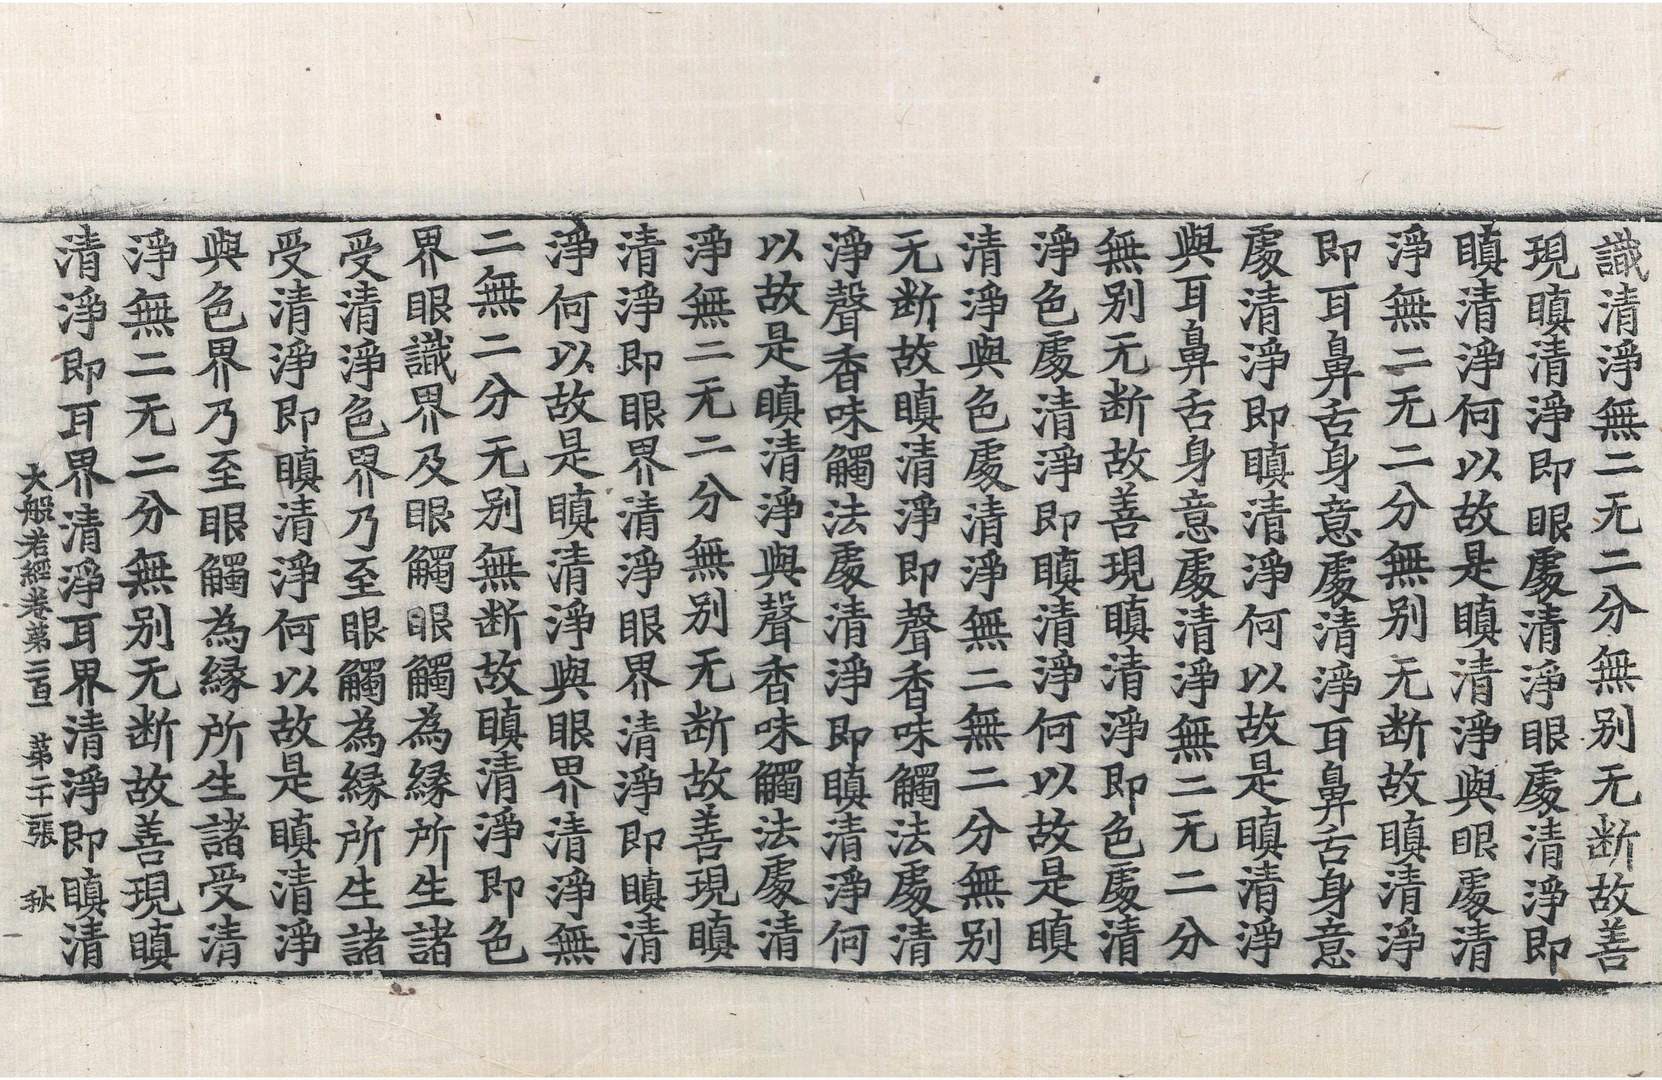 識清淨無二无二分無别无断故善
現瞋清淨即眼處清淨眼處清淨即
瞋清淨何以故是瞋清淨與眼處清
淨無二无二分無别无断故瞋清淨
即耳鼻舌身意處清淨耳鼻舌身意
處清淨即瞋清淨何以故是瞋清淨
與耳鼻舌身意處清淨無二无二分
無别无断故善現瞋清淨即色處清
淨色處清淨即瞋清淨何以故是瞋
清淨與色處清淨無二無二分無别
无断故瞋清淨即聲香味觸法處清
淨聲香味觸法處清淨即瞋清淨何
以故是瞋清淨與聲香味觸法處清
淨無二无二分無别无断故善現瞋
清淨即眼界清淨眼界清淨即瞋清
淨何以故是瞋清淨與眼界清淨無
二無二分无别無断故瞋清淨即色
界眼識界及眼觸眼觸為縁所生諸
受清淨色界乃至眼觸為縁所生諸
受清淨即瞋清淨何以故是瞋清淨
與色界乃至眼觸為縁所生諸受清
淨無二无二分無别无断故善現瞋
清淨即耳界清淨耳界清淨即瞋清
大般若經卷苐二百 苐二十二張 秋